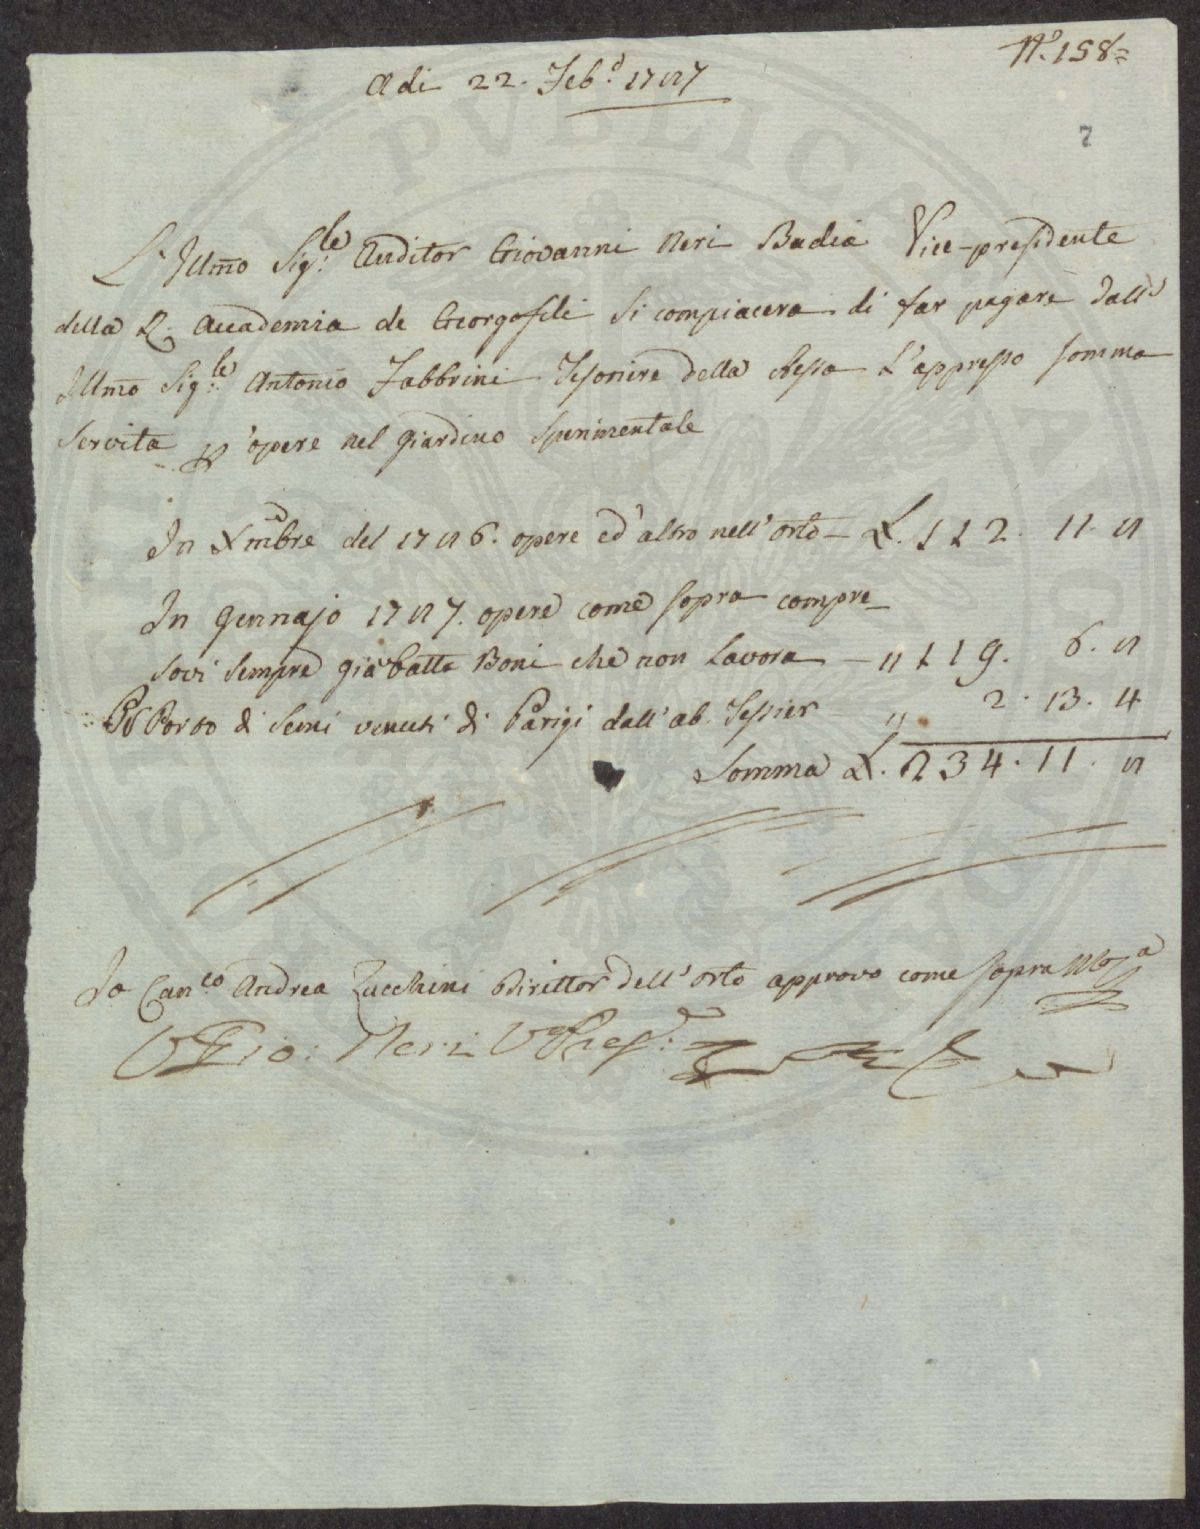 N.° 158=
Adi 22. Feb.° 1787
7
L'Illmo Sig.le Auditor Giovanni Neri Badia Vice-presidente
della R. Accademia de Georgofili si compiacera di far pagare dall'
Illmo Sig.le Antonio Fabbrini Tesoriere della stessa L'appresso somma
servita p opere nel giardino sperimentale
In Xmbre del 1786. opere ed'altro nell'orto — L. 112. 11. 8
In Gennajo 1787. opere come sopra compre
sovi sempre Gio Batta Boni che non Lavora — " 119. 6. 8
P Porto di Semi venuti di Parigi dall'ab. Tessier " 2. 13. 4
Somma L. 234. 11. 8
Io Can.co Andrea Zucchini Direttor dell'orto approvo come sopra
Gio: Neri V Pres:e